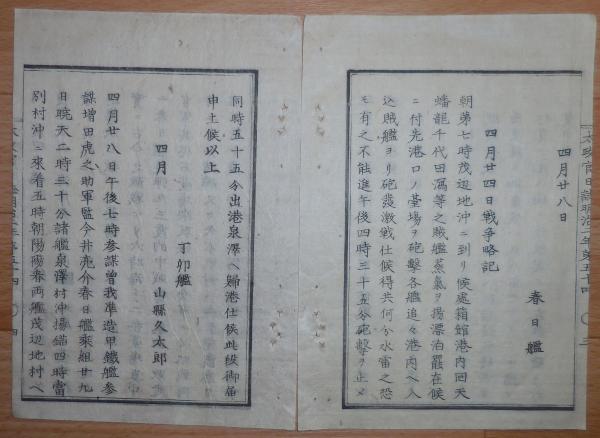 四月廿八日
春日艦
四月廿四日戦争略記
朝第七時茂辺地沖ニ到リ候處箱館港内回天
蟠龍千代田瀉等之賊艦蒸氣ヲ揚漂泊罷在候
ニ付先港口ノ臺場ヲ砲擊各艦追々港内ヘ入
込賊艦ヲリ砲發激戦仕候得共何分水雷之恐
モ有之不能進午後四時三十五分砲擊ヲ止メ
同時五十五分出港泉澤ヘ歸港仕候此段御届
申上候以上
四月
丁卯艦
山縣久太郎
四月廿八日午後七時参謀曾我準造甲鐵艦参
謀增田虎之助軍監今井亮介春日艦乘組廿九
日暁天二時三十分諸艦泉澤村沖揚錨四時當
別村沖ニ來着五時朝陽陽春両艦茂辺地村ヘ